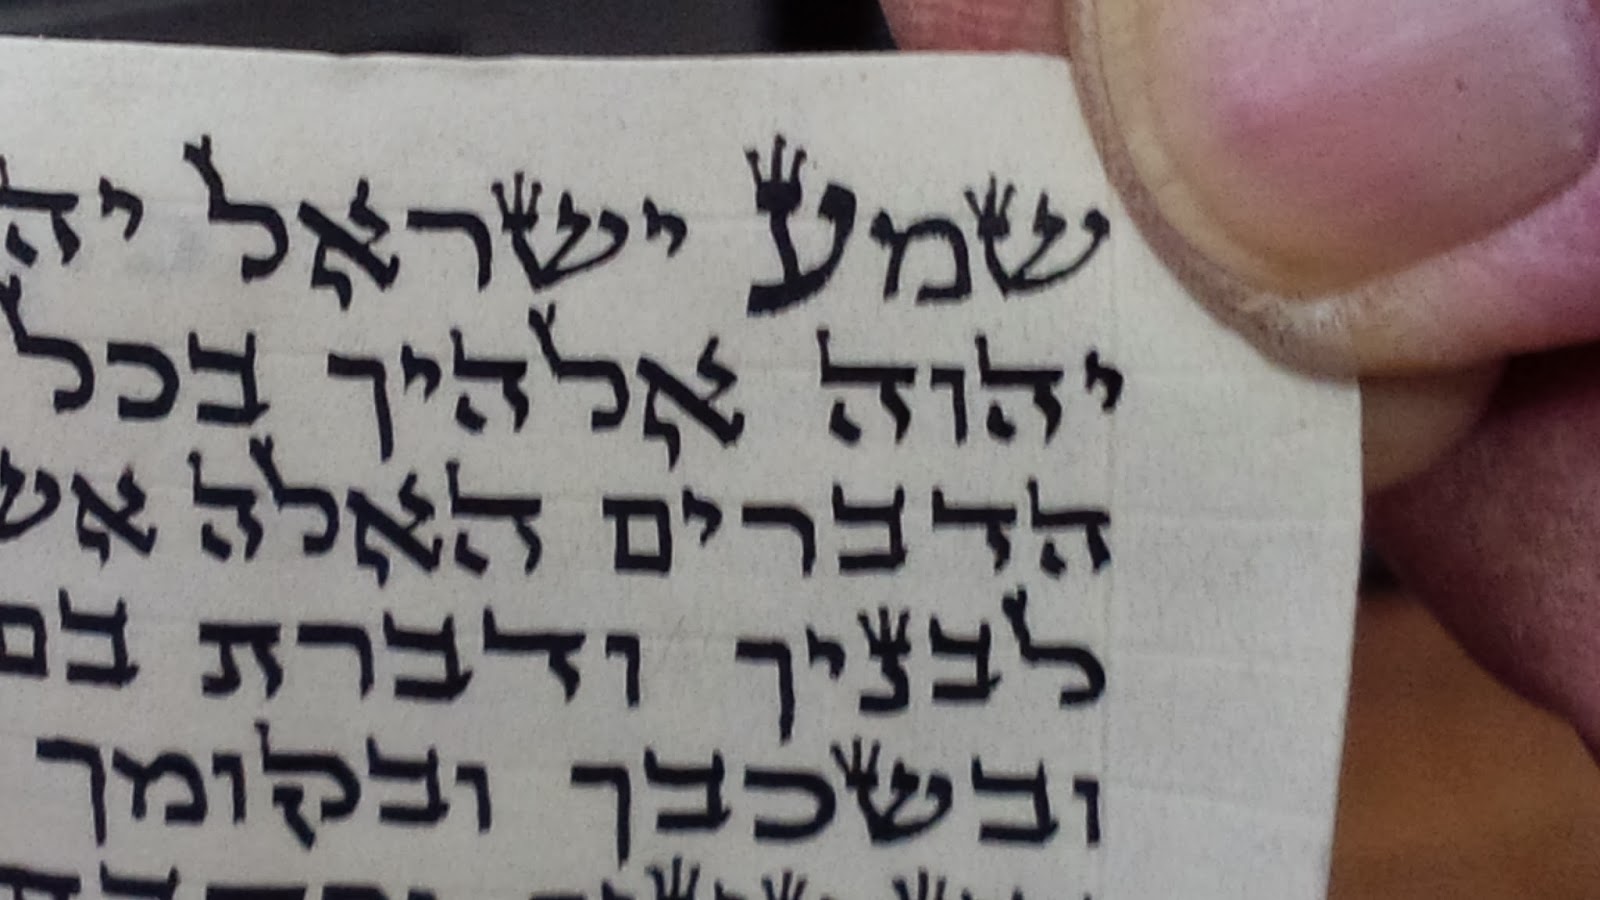 שמע ישראל יה
יהוה אלהיך בכל
הדברים האלה אש
לבניך ודברת בם
ובשכבך ובקומך